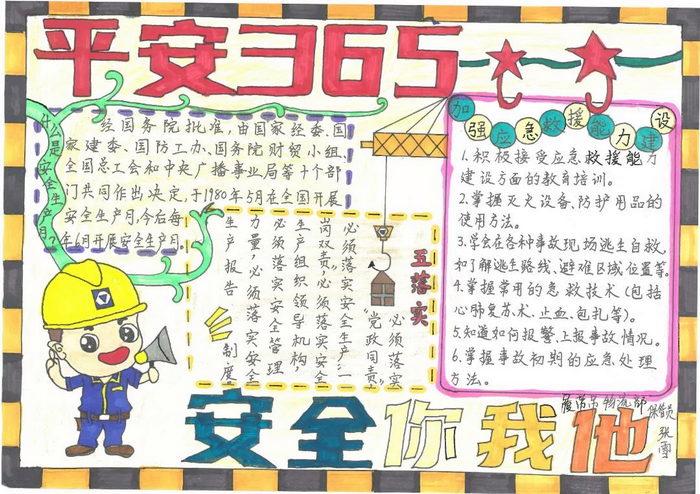 平安365
什么是安全生产月？
经国务院批准，由国家经委、国
家建委、国防工办、国务院财贸小组、
全国总工会和中央广播事业局等十个部
门共同作出决定，于1980年5月在全国开展
安全生产月，今后每
年6月开展安全生产月。
五落实
必须落实
“党政同责”
必须落实安全生产“一
岗双责”，必须落实安全
生产组织领导机构，
必须落实安全管理
力量，必须落实安全
生产报告制度
加强应急救援能力建设
1.积极接受应急救援能力
建设方面的教育培训。
2.掌握灭火设备、防护用品的
使用方法。
3.学会在各种事故现场逃生自救，
如了解逃生路线、避难区域位置等。
4.掌握常用的急救技术（包括
心肺复苏术、止血、包扎等）。
5.知道如何报警、上报事故情况。
6.掌握事故初期的应急处理
方法。
物流部
保管员
张雨
安全你我他